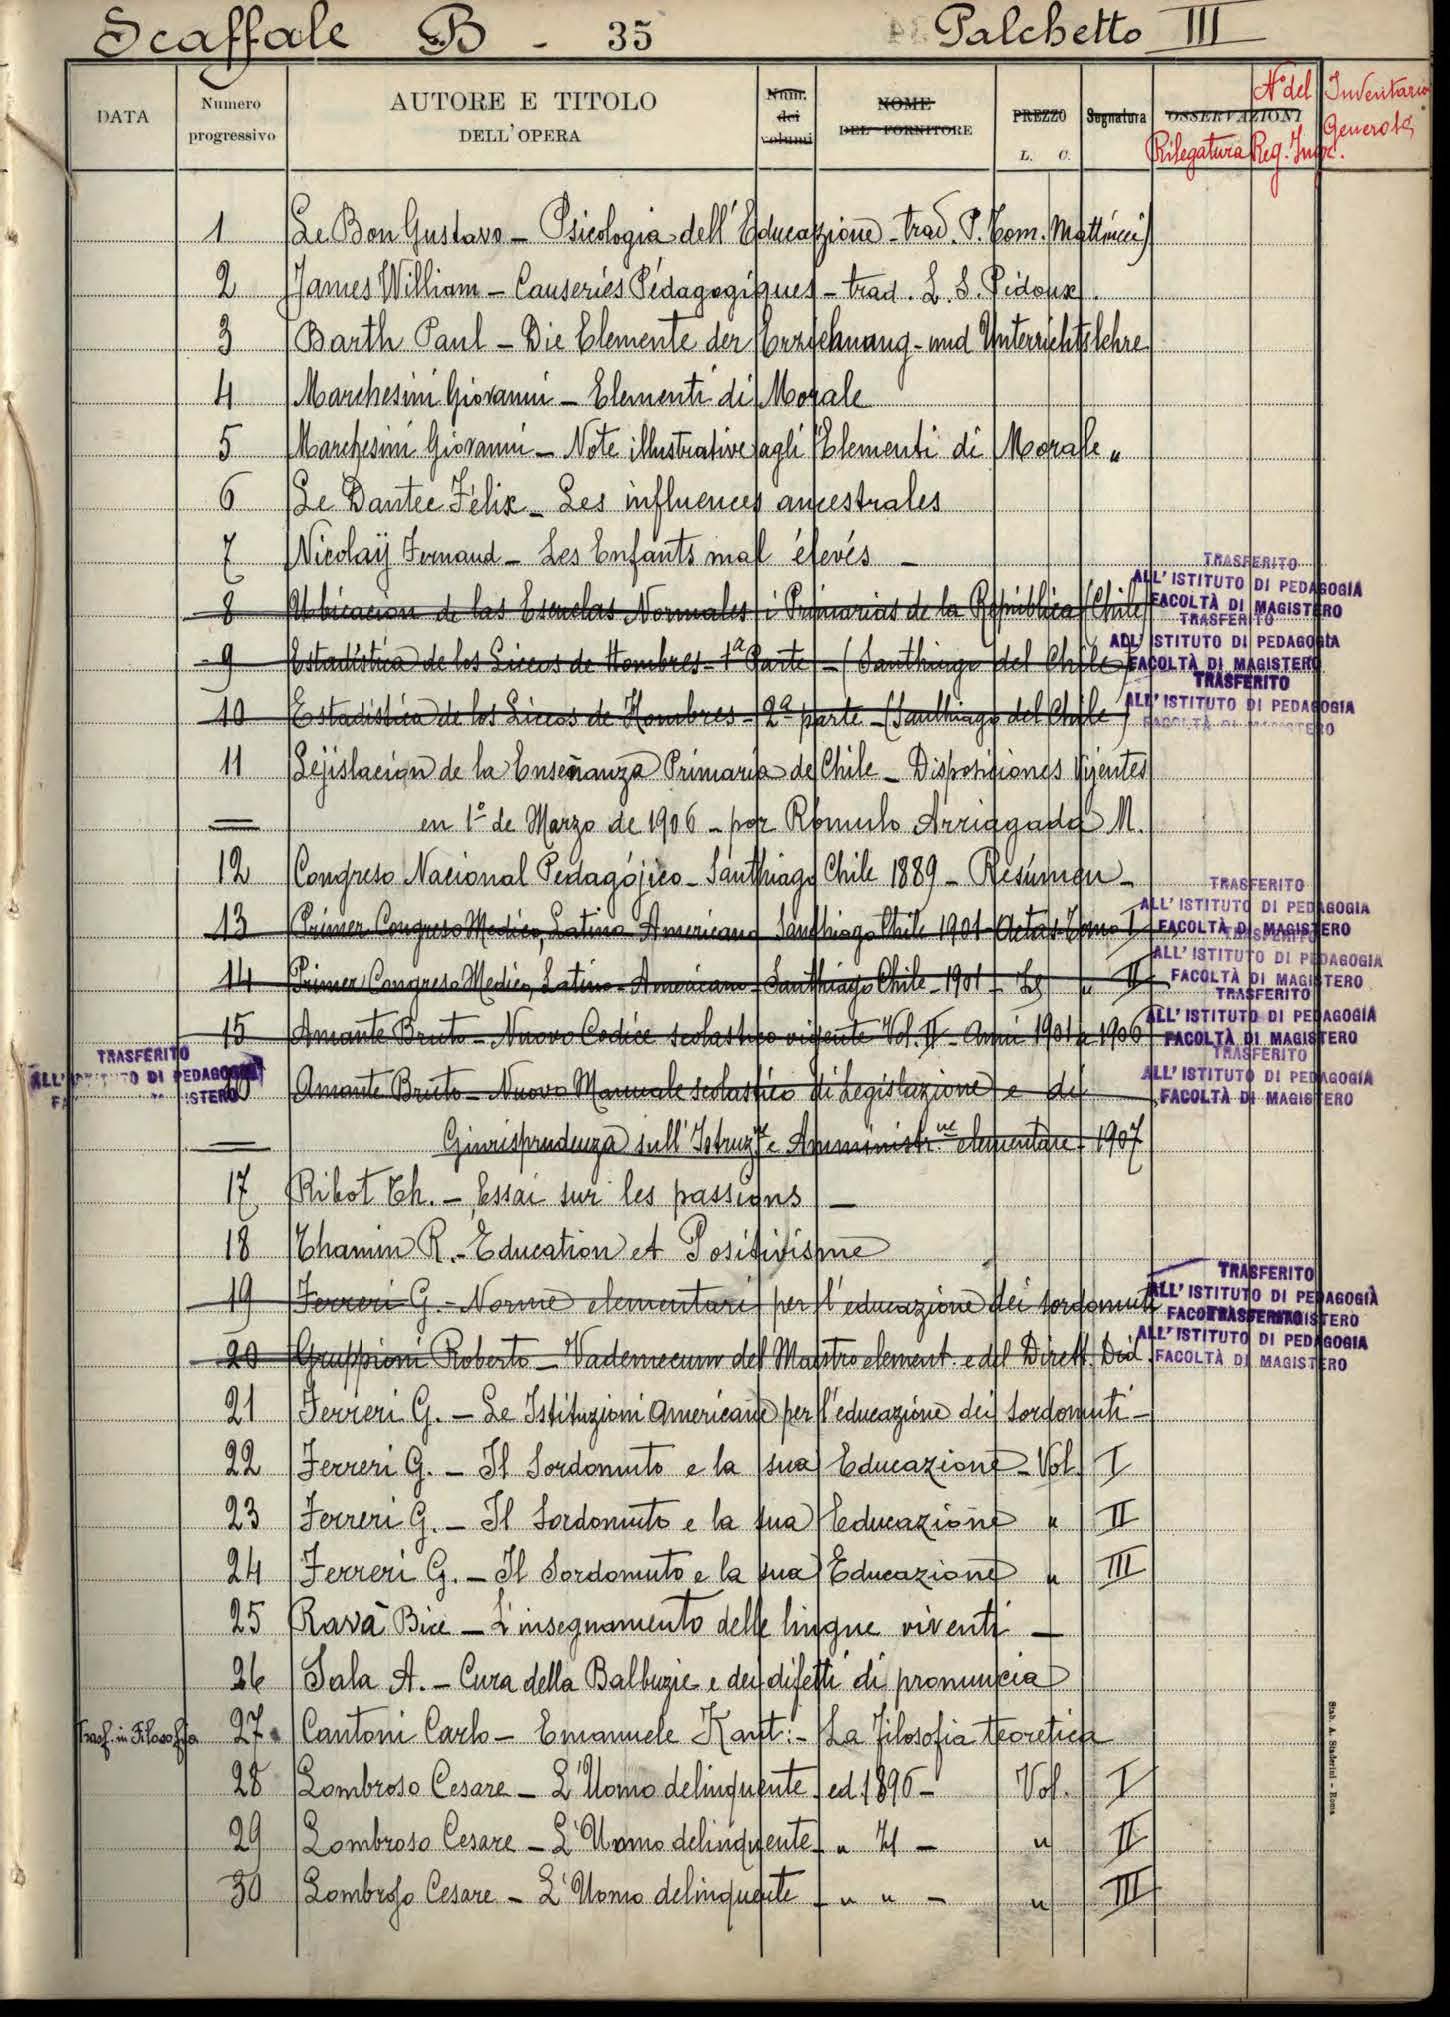 Scaffale B - 35 Palchetto III
DATA Numero progressivo AUTORE E TITOLO DELL'OPERA Num. dei volumi NOME DEL FORNITORE PREZZO L. C. Segnatura OSSERVAZIONI Rilegatura N° del Reg. Ingr. Inventario Generale
1 Le Bon Gustavo - Psicologia dell'Educazione - trad. P. Tom. Mattiucci)
2 James William - Causeries Pédagogiques - trad. L. S. Pidoux.
3 Barth Paul - Die Elemente der Erziehuaug - und Unterrichtslehre
4 Marchesini Giovanni - Elementi di Morale
5 Marchesini Giovanni - Note illustrative agli "Elementi di Morale"
6 Le Dantec Félix - Les influences ancestrales
7 Nicolaÿ Fernand - Les Enfants mal élevés -
8 Ubicacion de las Escuelas Normales i Primarias de la República (Chile)
TRASFERITO
ALL'ISTITUTO DI PEDAGOGIA
FACOLTÀ DI MAGISTERO
9 Estadistica de los Liceos de Hombres - 1ª Parte - (Santhiago del Chile)
TRASFERITO
ALL'ISTITUTO DI PEDAGOGIA
FACOLTÀ DI MAGISTERO
10 Estadistica de los Liceos de Hombres - 2ª parte - (Santhiago del Chile)
TRASFERITO
ALL'ISTITUTO DI PEDAGOGIA
FACOLTÀ DI MAGISTERO
11 Lejislacion de la Enseñanza Primaria de Chile - Disposiciones Vijentes
en 1° de Marzo de 1906 - por Rómulo Arriagada M.
12 Congreso Nacional Pedagójico - Santhiago Chile 1889 - Resúmen -
13 Primer Congreso Medico, Latino Americano Santhiago Chile 1901 - Actas - Tomo I
TRASFERITO
ALL'ISTITUTO DI PEDAGOGIA
FACOLTÀ DI MAGISTERO
14 Primer Congreso Medico, Latino - Americano - Santhiago Chile - 1901 - " II
TRASFERITO
ALL'ISTITUTO DI PEDAGOGIA
FACOLTÀ DI MAGISTERO
15 Amante Bruto - Nuovo Codice scolastico vigente Vol. II - Anni 1901 a 1906
TRASFERITO
ALL'ISTITUTO DI PEDAGOGIA
FACOLTÀ DI MAGISTERO
TRASFERITO
ALL'ISTITUTO DI PEDAGOGIA
16 Amante Bruto - Nuovo Manuale scolastico di Legislazione e di
TRASFERITO
ALL'ISTITUTO DI PEDAGOGIA
FACOLTÀ DI MAGISTERO
Giurisprudenza sull'Istruz.ne e Amministr.ne elementare - 1907
17 Ribot Th. - Essai sur les passions -
18 Thamin R. - Education et Positivisme
19 Ferreri G. - Norme elementari per l'educazione dei sordomuti
TRASFERITO
ALL'ISTITUTO DI PEDAGOGIA
FACOLTÀ DI MAGISTERO
20 Gruppioni Roberto - Vademecum del Maestro element. e del Dirett. Did.
TRASFERITO
ALL'ISTITUTO DI PEDAGOGIA
FACOLTÀ DI MAGISTERO
21 Ferreri G. - Le Istituzioni Americane per l'educazione dei sordomuti -
22 Ferreri G. - Il Sordomuto e la sua Educazione - Vol. I
23 Ferreri G. - Il Sordomuto e la sua Educazione " II
24 Ferreri G. - Il Sordomuto e la sua Educazione " III
25 Ravà Bice - L'insegnamento delle lingue viventi -
26 Sala A. - Cura della Balbuzie e dei difetti di pronuncia
Trasf. in Filosofia 27 Cantoni Carlo - Emanuele Kant: - La filosofia teoretica
28 Lombroso Cesare - L'Uomo delinquente - ed. 1896 - Vol. I
29 Lombroso Cesare - L'Uomo delinquente - " - " II
30 Lombroso Cesare - L'Uomo delinquente - " " - " III
Stab. A. Staderini - Roma